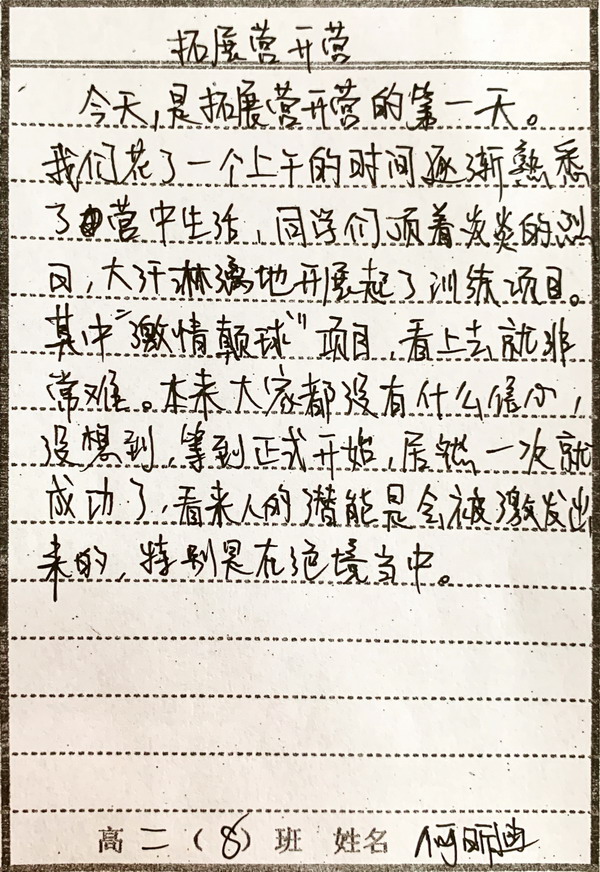 拓展营开营
今天,是拓展营开营的第一天。
我们花了一个上午的时间逐渐熟悉
了营中生活,同学们顶着炎炎的烈
日,大汗淋漓地开展起了训练项目。
其中“激情颠球”项目,看上去就非
常难。本来大家都没有什么信心,
没想到,等到正式开始,居然一次就
成功了,看来人的潜能是会被激发出
来的,特别是在绝境当中。
高二(8)班 姓名 何昕迪